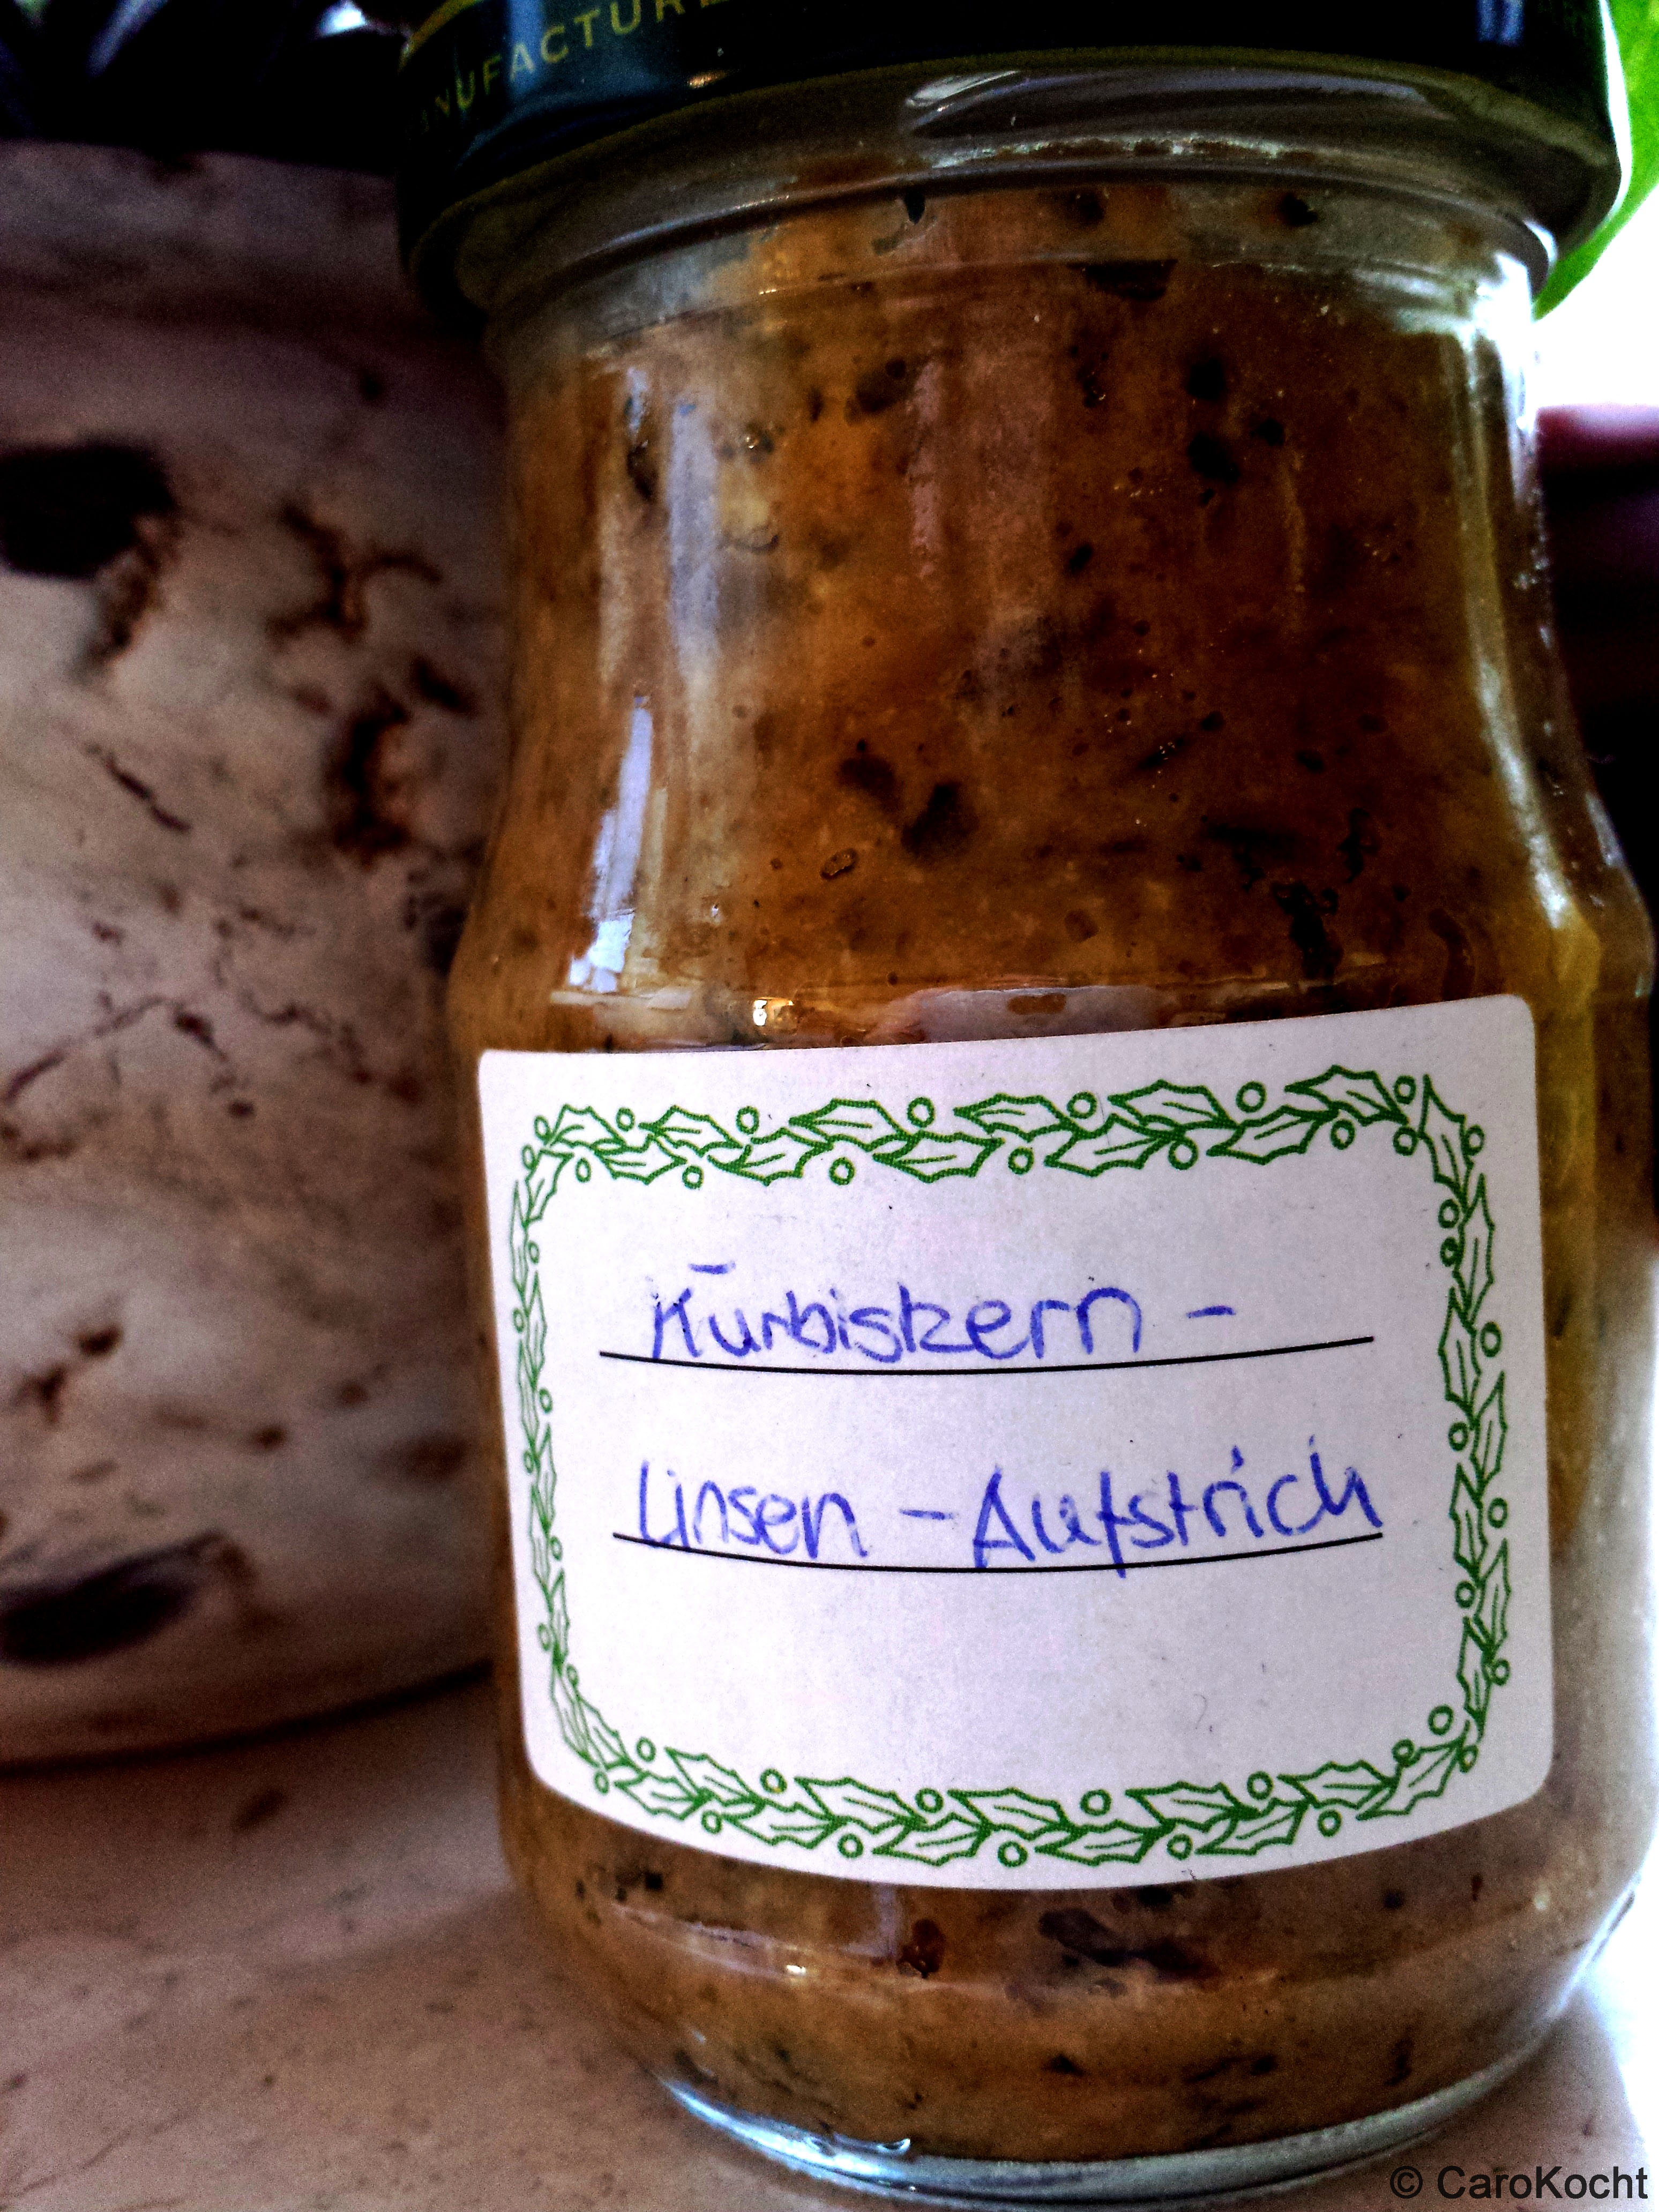 MANUFACTURE
Kürbiskern -
Linsen - Aufstrich
© CaroKocht